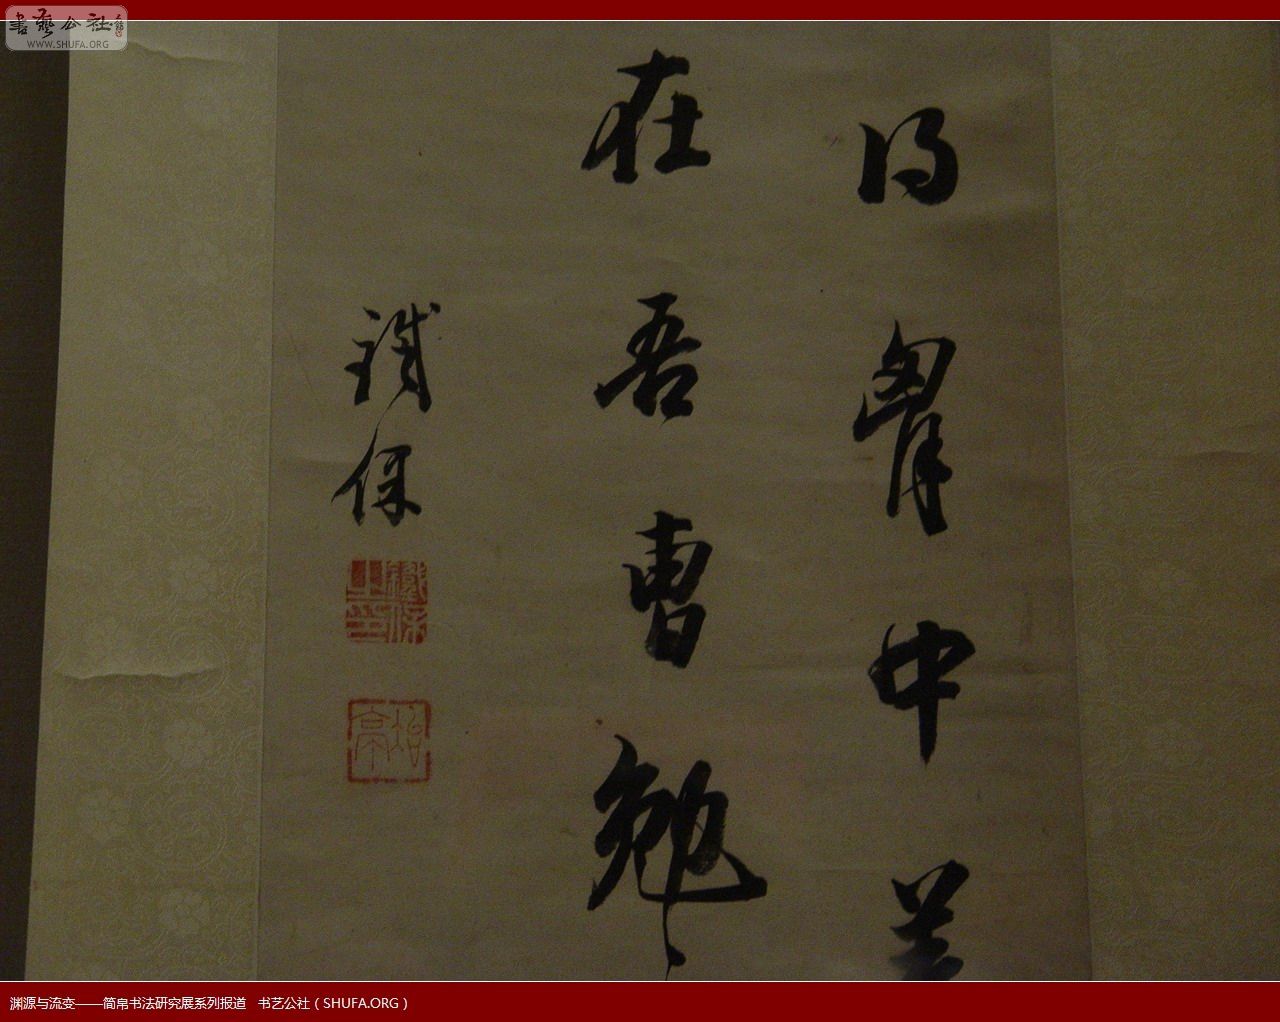 書藝公社
WWW.SHUFA.ORG
得胷中
在吾曹勉
鐵保
鐵保之印
冶亭
渊源与流变——简帛书法研究展系列报道 书艺公社（SHUFA.ORG）